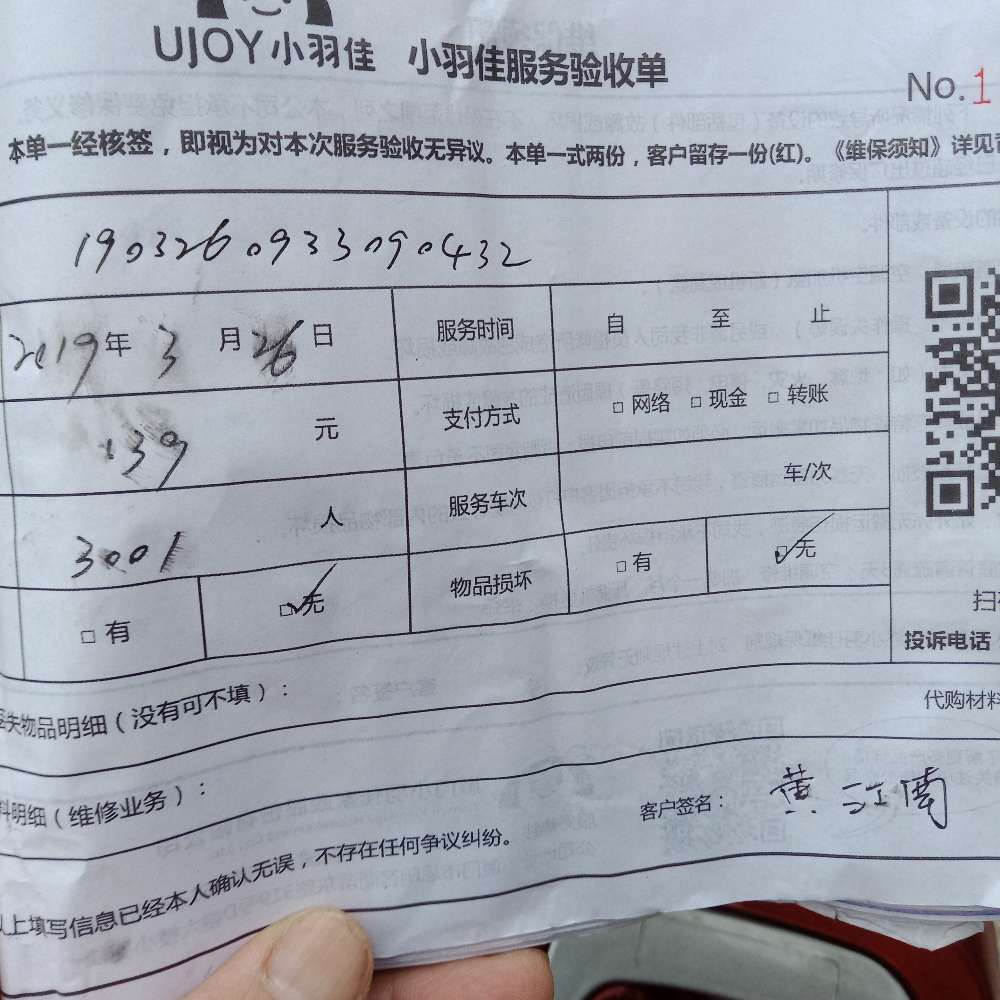 UJOY小羽佳 小羽佳服务验收单
No.1
本单一经核签，即视为对本次服务验收无异议。本单一式两份，客户留存一份(红)。《维保须知》详见
190326093309.0432
2019年 3 月 26 日 服务时间 自 至 止
139 元 支付方式 □ 网络 □ 现金 □ 转账
3001 人 服务车次 车/次
□ 有 □ 无 物品损坏 □ 有 □ 无
扫
投诉电话
失物品明细（没有可不填）：
代购材料
料明细（维修业务）：
客户签名： 黄江南
以上填写信息已经本人确认无误，不存在任何争议纠纷。